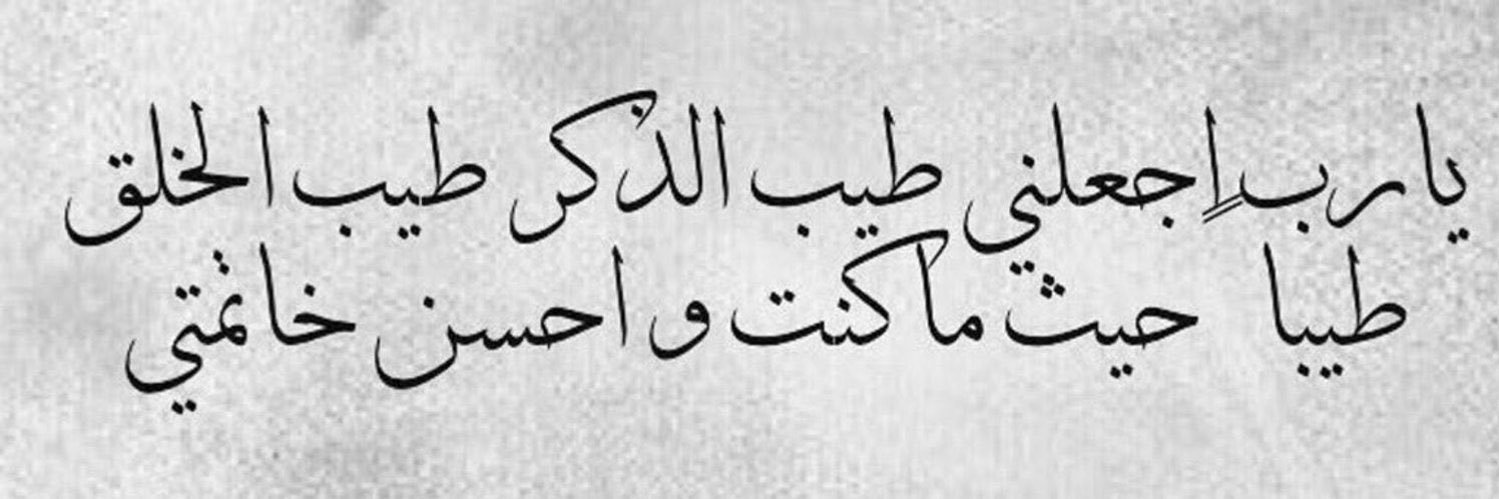 يا رب اٍجعلني طيب الذكر طيب الخلق
طيبا حيث ما كنت و احسن خاتمتي